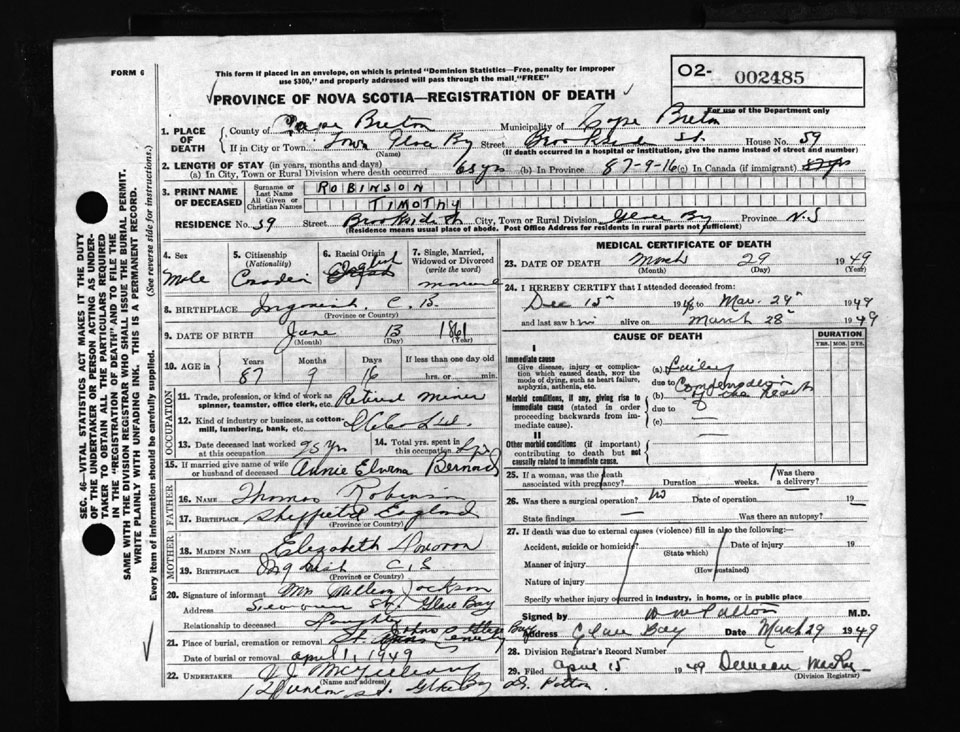 FORM 6
This form if placed in an envelope, on which is printed "Dominion Statistics—Free, penalty for improper
use $300," and properly addressed will pass through the mail "FREE"
O2- 002485
For use of the Department only
PROVINCE OF NOVA SCOTIA—REGISTRATION OF DEATH
1. PLACE OF DEATH
County of Cape Breton Municipality of Cape Breton
If in City or Town Town Glace Bay Street Brookside St. House No. 59
(Name) (If death occurred in a hospital or institution, give the name instead of street and number)
2. LENGTH OF STAY (in years, months and days)
(a) In City, Town or Rural Division where death occurred 65 yrs (b) In Province 87-9-16 (c) In Canada (if immigrant)
3. PRINT NAME OF DECEASED
Surname or Last Name ROBINSON
All Given or Christian Names TIMOTHY
RESIDENCE No. 59 Street Brookside St City, Town or Rural Division Glace Bay Province N.S
(Residence means usual place of abode. Post Office Address for residents in rural parts not sufficient)
SEC. 46—VITAL STATISTICS ACT MAKES IT THE DUTY
OF THE UNDERTAKER OR PERSON ACTING AS UNDER-
TAKER TO OBTAIN ALL THE PARTICULARS REQUIRED
IN THE "REGISTRATION OF DEATH" AND TO FILE THE
SAME WITH THE DIVISION REGISTRAR WHO SHALL ISSUE THE BURIAL PERMIT.
WRITE PLAINLY WITH UNFADING INK. THIS IS A PERMANENT RECORD.
Every item of information should be carefully supplied. (See reverse side for instructions.)
4. Sex Male
5. Citizenship (Nationality)
6. Racial Origin English
7. Single, Married, Widowed or Divorced (write the word)
8. BIRTHPLACE Ingonish C.B.
(Province or Country)
9. DATE OF BIRTH June 13 1861
(Month) (Day) (Year)
10. AGE in Years 87 Months 9 Days 16 If less than one day old hrs. or min.
OCCUPATION
11. Trade, profession, or kind of work as spinner, teamster, office clerk, etc. Retired Miner
12. Kind of industry or business, as cotton-mill, lumbering, bank, etc.
13. Date deceased last worked at this occupation
14. Total yrs. spent in this occupation
15. If married give name of wife or husband of deceased Annie
FATHER
16. NAME Thomas Robinson
17. BIRTHPLACE Sheffield England
(Province or Country)
MOTHER
18. MAIDEN NAME Elizabeth
19. BIRTHPLACE Ingonish C.B
(Province or Country)
20. Signature of informant Mrs William Jackson
Address St. Glace Bay
Relationship to deceased Daughter
21. Place of burial, cremation or removal Glace Bay
Date of burial or removal april 1, 1949
22. UNDERTAKER
(Name and address)
Union St. Glace Bay
MEDICAL CERTIFICATE OF DEATH
23. DATE OF DEATH March 29 1949
(Month) (Day) (Year)
24. I HEREBY CERTIFY that I attended deceased from:
Dec 15" 1948 to Mar. 29" 1949
and last saw him alive on March 28" 1949
CAUSE OF DEATH
DURATION
YRS. MOS. DYS.
I
Immediate cause
Give disease, injury or complication which caused death, Not the mode of dying, such as heart failure, asphyxia, asthenia, etc.
(a)
due to
Morbid conditions, if any, giving rise to immediate cause (stated in order proceeding backwards from immediate cause).
(b) of the heart
due to
(c)
II
Other morbid conditions (if important) contributing to death but not causally related to immediate cause.
25. If a woman, was the death associated with pregnancy? Duration weeks. Was there a delivery?
26. Was there a surgical operation? No Date of operation 19
State findings Was there an autopsy?
27. If death was due to external causes (violence) fill in also the following:—
Accident, suicide or homicide? Date of injury 19
(State which)
Manner of injury
(How sustained)
Nature of injury
Specify whether injury occurred in industry, in home, or in public place
Signed by M.D.
Address Glace Bay Date March 29 1949
28. Division Registrar's Record Number
29. Filed april 15 1949
(Division Registrar)